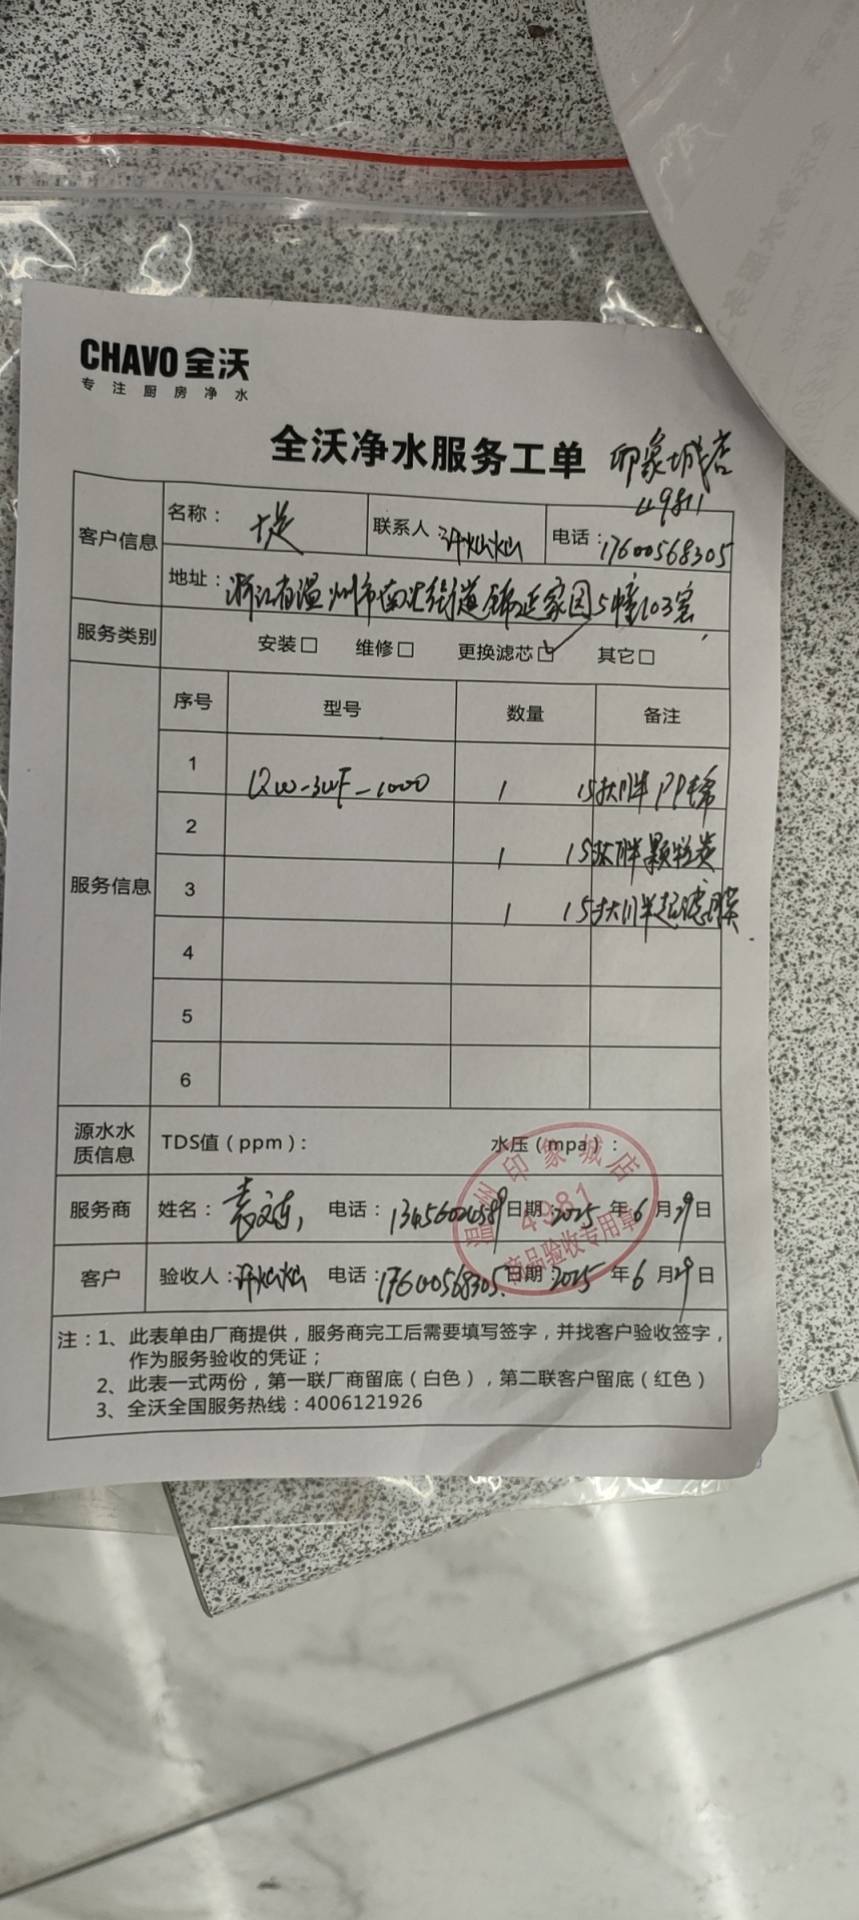 CHAVO 全沃
专注厨房净水
全沃净水服务工单 印象城店
49811
客户信息 名称： 堤 联系人： 电话：17600568305
地址：浙江省温州市南汇街道锦延家园5幢103室
服务类别 安装□ 维修□ 更换滤芯□ 其它□
服务信息 序号 型号 数量 备注
1 QW-3UF-1000 1 15状胖PP棉
2 1 15状胖颗粒炭
3 1 15状胖超滤膜
4
5
6
源水水质信息 TDS值（ppm）： 水压（mpa）：
服务商 姓名： 电话： 日期：2025年6月29日
客户 验收人： 电话：17600568305 日期：2025年6月29日
温州印象城店
4981
商品验收专用章
注：1、此表单由厂商提供，服务商完工后需要填写签字，并找客户验收签字，
作为服务验收的凭证；
2、此表一式两份，第一联厂商留底（白色），第二联客户留底（红色）
3、全沃全国服务热线：4006121926